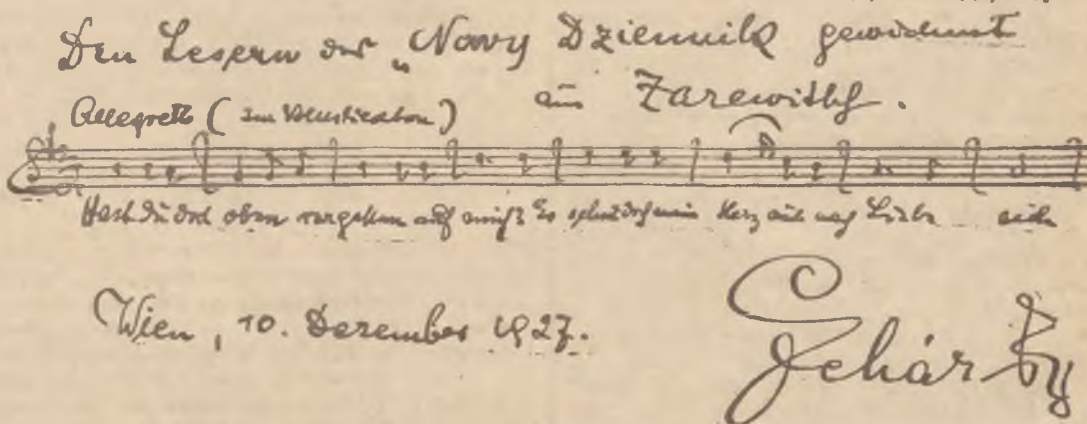 Den Lesern des „Nowy Dziennik gewidmet
aus Zarewitsch.
Allegretto ( im Volksliedton )
Hast du dort oben vergessen auf mich? Es sehnt doch mein Herz auch nach Liebe sich
Wien, 10. Dezember 1927.
Lehár